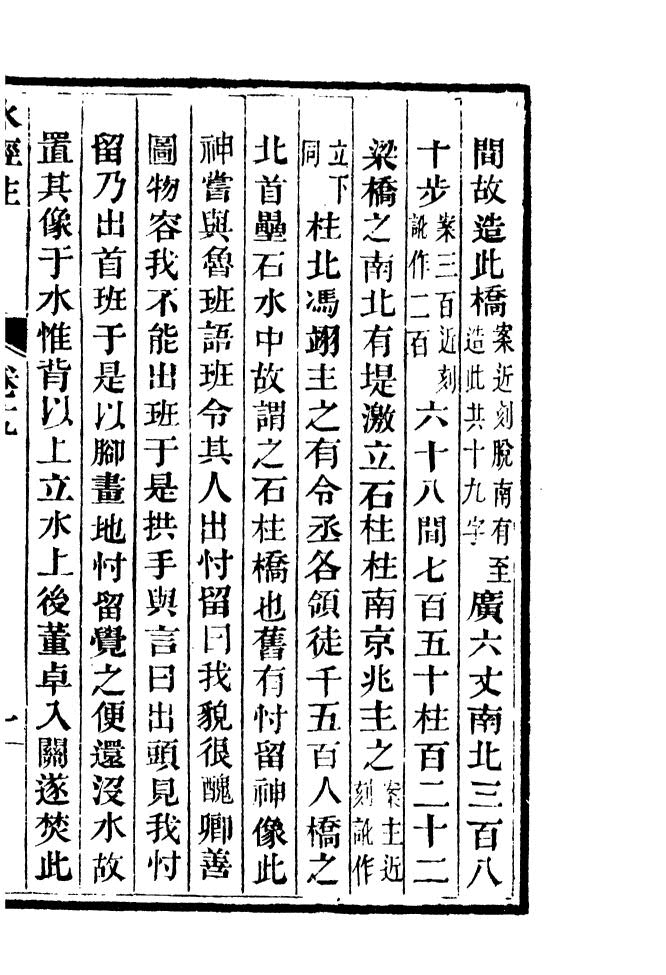 間故造此橋案近刻脫南有至造此共十九字廣六丈南北三百八
十步案三百近刻訛作二百六十八間七百五十柱百二十二
梁橋之南北有堤激立石柱柱南京兆主之案主近刻訛作
立下同柱北馮翊主之有令丞各領徒千五百人橋之
北首壘石水中故謂之石柱橋也舊有忖留神像此
神嘗與魯班語班令其人出忖留曰我貌很醜卿善
圖物容我不能出班于是拱手與言曰出頭見我忖
留乃出首班于是以腳畫地忖留覺之便還沒水故
置其像于水惟背以上立水上後董卓入關遂焚此
水經注 卷十九 一